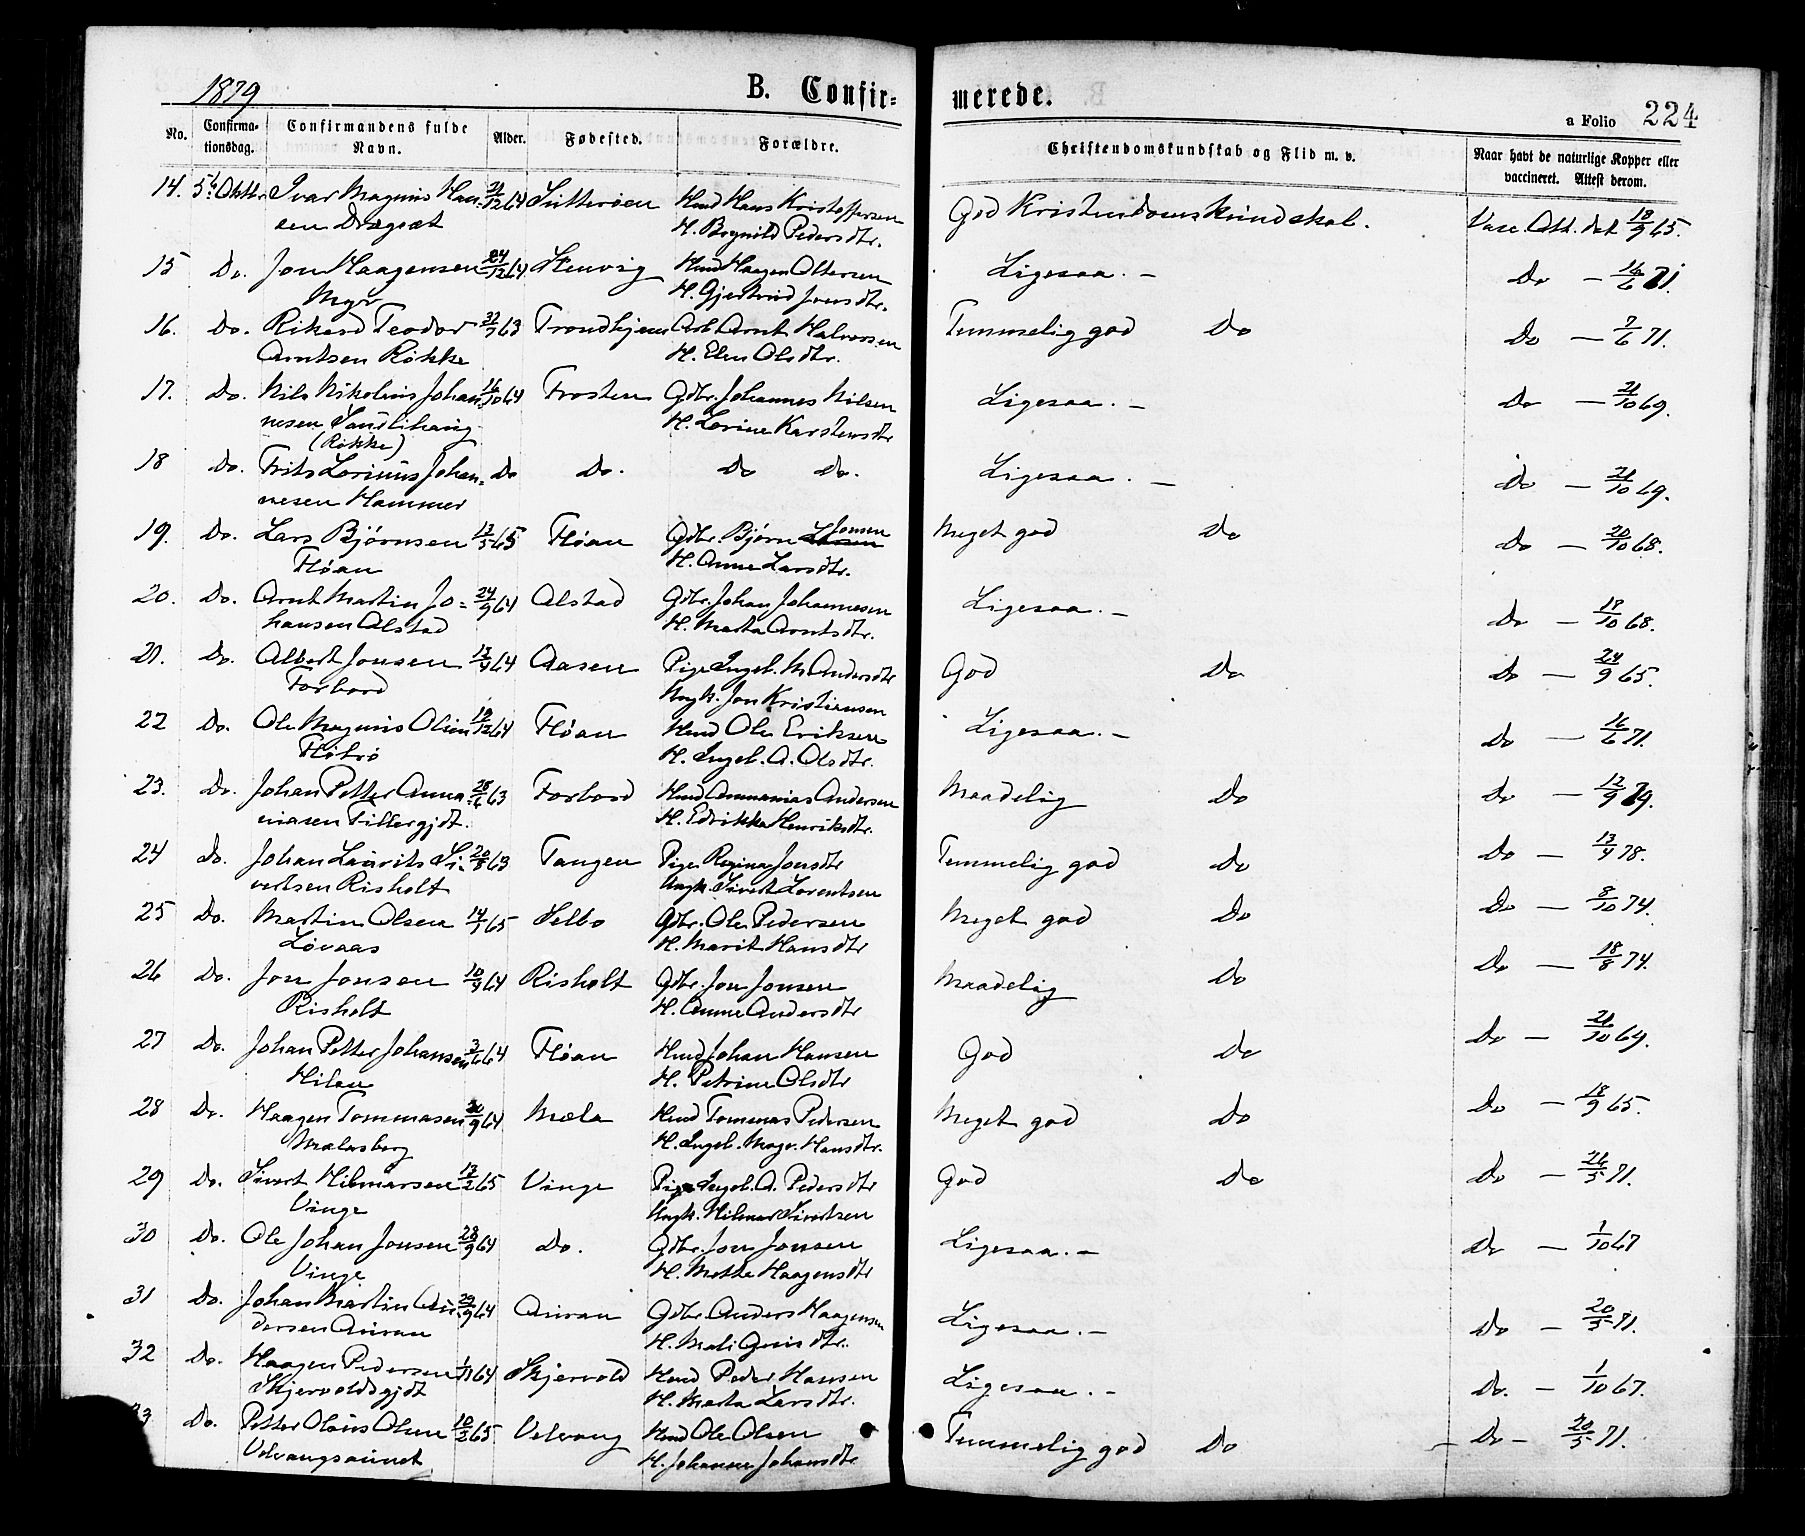 1879
B. Confir=
merede.
a Folio 224
No.
Confirma-
tionsdag.
Confirmandens fulde
Navn.
Alder.
Fødested.
Forældre.
Christendomskundskab og Flid m. v.
Naar havt de naturlige Kopper eller
vaccineret. Attest derom.
14. 5te Oktbr Ivar Magnus Han- /12 64 Sutterøen Hmd Hans Kristoffersen God Kristendomskundskab. Vacc. Att. dat 18/9 65.
sen Dragsæt H. Bognild Pedersdtr.
15 Do. Jon Haagensen 24/12 64 Stenvig Hmd Haagen Ottersen Ligesaa. — Do — 16/6 71.
Myr H. Gjertrud Jonsdtr.
16. Do. Rikard Teodor /7 63 Trondhjem Arb. Arnt Halvorsen Temmelig god Do Do — 7/6 71.
Arntsen Røkke H. Elen Olsdtr.
17. Do. Nils Nikolaus Johan- 16/10 64 Frosten Gdbr. Johannes Nilsen Ligesaa. — Do — 21/10 69.
nesen Sandlihaug H. Lorine Karstensdtr
(Røkke)
18 Do. Frits Lorinus Johan= Do Do. Do Do. Ligesaa. — Do — 21/10 69.
nesen Hammer
19. Do. Lars Bjørnsen 13/5 65 Fløan Gdbr. Bjørn Jonsen Meget god Do Do — 20/10 68.
Fløan H. Anne Larsdtr.
20. Do. Arnt Martin Jo= 24/9 64 Alstad Gdbr. Johan Johannesen Ligesaa. — Do — 18/10 68.
hansen Alstad H. Marta Arntsdtr.
21. Do. Albert Jonsen 13/9 64 Aasen Pige Ingeb. M. Andersdtr God Do Do — 24/9 65.
Forbord Ungk. Jon Kristiansen
22 Do. Ole Magnus Olsen 19/12 64 Fløan Hmd Ole Eriksen Ligesaa. — Do — 16/6 71.
Fløtrø H. Ingeb. A. Olsdtr.
23. Do. Johan Petter Anna- 28/6 63 Forbord Hmd Annanias Andersen Maadelig Do Do — 12/9 79.
niasen Fillergjdt. H. Edrikka Henriksdtr.
24 Do. Johan Laurits Si- 20/8 63 Tangen Pige Regina Jonsdtr Temmelig god Do Do — 13/9 78.
vertsen Risholt Ungk. Sivert Lorentsen
25 Do. Martin Olsen 14/1 65 Selbo Gdbr. Ole Pedersen Meget god Do Do — 8/10 74.
Løvaas H. Marit Hansdtr
26 Do. Jon Jonsen 10/9 64 Risholt Gdbr. Jon Jonsen Maadelig Do Do — 18/8 74.
Risholt H. Anne Andersdtr
27 Do. Johan Petter Johansen 3/6 64 Fløan Hmd Johan Hansen God Do Do — 21/10 69.
Hilan H. Petrine Olsdtr
28 Do. Haagen Tommasen 20/9 64 Mæla Hmd Tommas Pedersen Meget god Do Do — 18/9 65.
Mælasberg H. Ingeb. Magr. Hansdtr.
29 Do. Sivert Hilmarsen 13/2 65 Vinge Pige Ingeb. A. Pedersdtr God Do Do — 26/5 71.
Vinge Ungk. Hilmar Sivertsen
30 Do. Ole Johan Jonsen 28/9 64 Do. Gdbr. Jon Jonsen Ligesaa. — Do — 1/10 67
Vinge H. Mette Haagensdtr
31 Do. Johan Martin An- 29/9 64 Auran Gdbr. Anders Haagensen Ligesaa. — Do — 20/5 71.
dersen Auran H. Mali Gunsdtr.
32 Do. Haagen Pedersen 1/11 64 Skjervold Hmd Peder Hansen Ligesaa. — Do. — 1/10 67.
Skjervoldsgjdt H. Marta Larsdtr.
33 Do. Petter Olaus Olsen 10/2 65 Velvang Hmd Ole Olsen Temmelig god Do — Do — 20/5 71.
Velvangsaunet H. Johanna Johansdtr